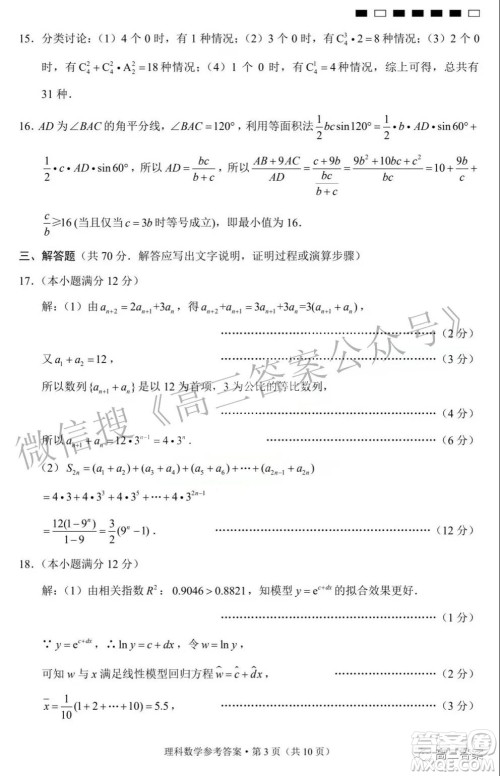 15．分类讨论:（1）4 个 0 时，有 1 种情况;（2）3 个 0 时，有 C₄³•2=8 种情况;（3）2 个 0
时，有 C₄²+C₄²•A₂²=18 种情况;（4）1 个 0 时，有 C₄¹=4 种情况，综上可得，总共有
31 种．
16．AD 为∠BAC 的角平分线，∠BAC=120°，利用等面积法 1/2 bc sin120°= 1/2 •b•AD•sin60°+
1/2 •c•AD•sin60°，所以 AD= bc/(b+c)，所以 (AB+9AC)/AD = (c+9b)/(bc/(b+c)) = (9b²+10bc+c²)/bc =10+ 9b/c +
c/b ≥16 (当且仅当 c=3b 时等号成立)，即最小值为 16．
三、解答题（共 70 分．解答应写出文字说明，证明过程或演算步骤）
17．（本小题满分 12 分）
解:（1）由 aₙ₊₂=2aₙ₊₁+3aₙ，得 aₙ₊₂+aₙ₊₁=3aₙ₊₁+3aₙ=3(aₙ₊₁+aₙ)，
……………………………………（2 分）
又 a₁+a₂=12， ……………………………………（3 分）
所以数列{aₙ₊₁+aₙ}是以 12 为首项，3 为公比的等比数列，
……………………………………（4 分）
所以 aₙ₊₁+aₙ=12•3ⁿ⁻¹=4•3ⁿ． ……………………………………（6 分）
（2）S₂ₙ=(a₁+a₂)+(a₃+a₄)+(a₅+a₆)+…+(a₂ₙ₋₁+a₂ₙ)
=4•3+4•3³+4•3⁵+…+4•3²ⁿ⁻¹
= 12(1−9ⁿ)/(1−9) = 3/2 (9ⁿ−1)． ……………………………………（12 分）
18．（本小题满分 12 分）
解:（1）由相关指数 R²：0.9046>0.8821，知模型 y=e^(c+dx) 的拟合效果更好．
……………………………………（1 分）
∵ y=e^(c+dx)，∴ ln y=c+dx，令 w=ln y，
可知 w 与 x 满足线性模型回归方程 ŵ=ĉ+d̂x， ……………………………………（2 分）
x̄= 1/10 (1+2+…+10)=5.5， ……………………………………（3 分）
理科数学参考答案•第 3 页（共 10 页）
微信搜《高三答案公众号》
高三答案